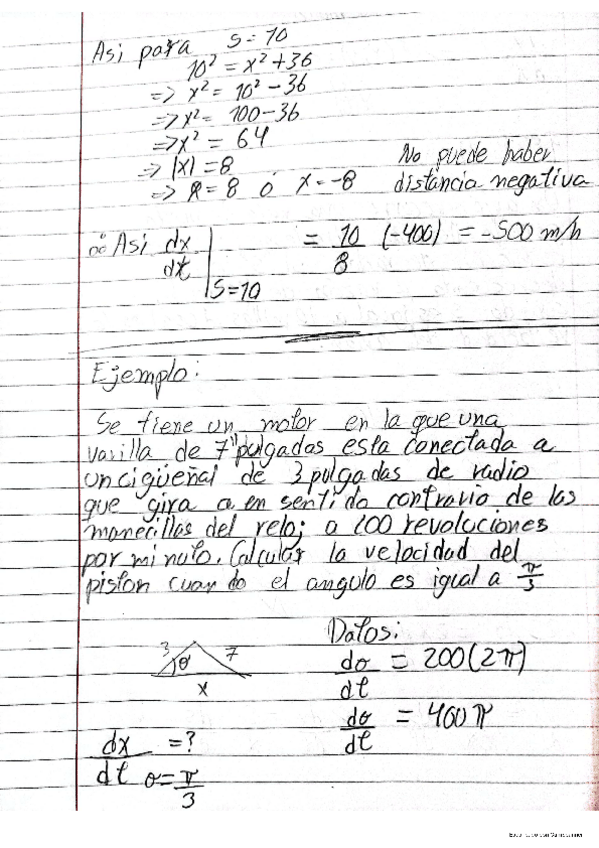 Asi para S=10
10² = x²+36
=> x² = 10² - 36
=> x² = 100-36
=> x² = 64
=> |x| = 8
=> x = 8 ó x = -8
No puede haber
distancia negativa
∴ Asi dx/dt | S=10 = 10/8 (-400) = -500 m/h
Ejemplo:
Se tiene un motor en la que una
varilla de 7" pulgadas esta conectada a
un cigüeñal de 3 pulgadas de radio
que gira a en sentido contrario de las
manecillas del reloj a 200 revoluciones
por minuto. Calcular la velocidad del
piston cuando el angulo es igual a π/3
3 θ 7
x
Datos:
dθ/dt = 200(2π)
dθ/dt = 400π
dx/dt θ=π/3 =?